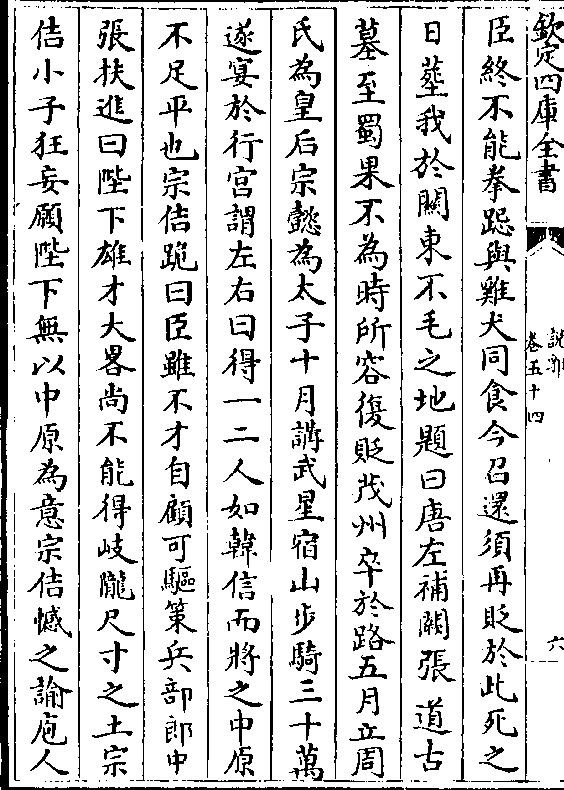 欽定四庫全書
說郛
卷五十四
六
臣終不能拳跽與雞犬同食今召還須再貶於此死之
日塟我於闗東不毛之地題曰唐左補闕張道古
墓至蜀果不為時所容復貶茂州卒於路五月立周
氏為皇后宗懿為太子十月講武星宿山步騎三十萬
遂宴於行宮謂左右曰得一二人如韓信而將之中原
不足平也宗佶跪曰臣雖不才自顧可驅策兵部郎中
張扶進曰陛下雄才大畧尚不能得岐隴尺寸之土宗
佶小子狂妄願陛下無以中原為意宗佶憾之諭庖人